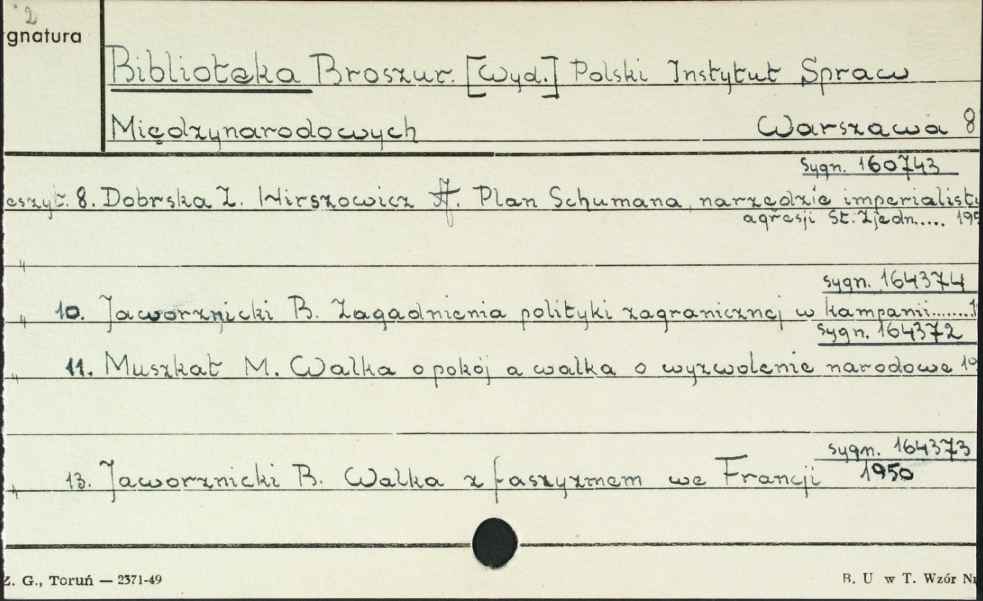 2
gnatura
Biblioteka Broszur. [Wyd.] Polski Instytut Spraw
Międzynarodowych Warszawa 8
sygn. 160743
eszyt. 8. Dobrska Z. Hirszowicz Ł. Plan Schumana, narzędzie imperialisty
agresji St. Zjedn..... 195
" 
sygn. 164374
" 10. Jaworznicki B. Zagadnienia polityki zagranicznej w kampanii.......1
sygn. 164372
" 11. Muszkat M. Walka o pokój a walka o wyzwolenie narodowe 19
sygn. 164373
" 13. Jaworznicki B. Walka z faszyzmem we Francji 1950
Z. G., Toruń — 2371-49
B. U w T. Wzór Nr